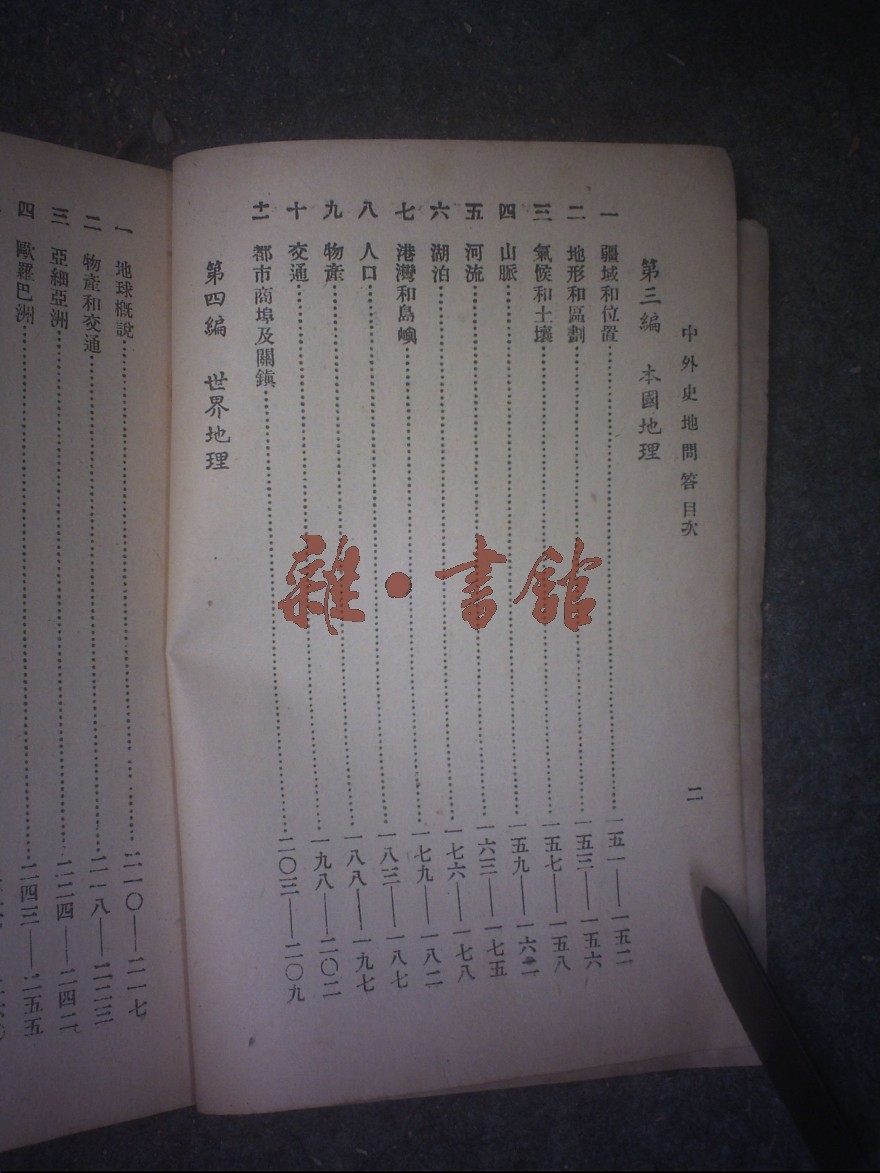 中外史地問答 目次
二
第三編 本國地理
一 疆域和位置……一五一——一五二
二 地形和區劃……一五三——一五六
三 氣候和土壤……一五七——一五八
四 山脈……一五九——一六二
五 河流……一六三——一七五
六 湖泊……一七六——一七八
七 港灣和島嶼……一七九——一八二
八 人口……一八三——一八七
九 物產……一八八——一九七
十 交通……一九八——二〇二
十一 都市商埠及關鎮……二〇三——二〇九
第四編 世界地理
一 地球概說……二一〇——二一七
二 物產和交通……二一八——二二三
三 亞細亞洲……二二四——二四二
四 歐羅巴洲……二四三——二五五
雜·書館